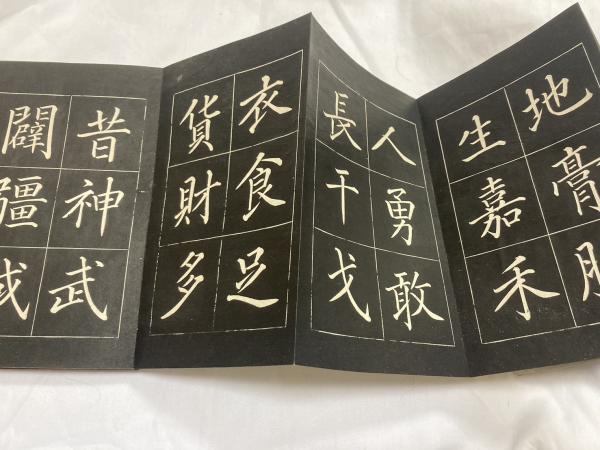 地膏
生嘉禾
人勇敢
長干戈
衣食足
貨財多
昔神武
闢疆